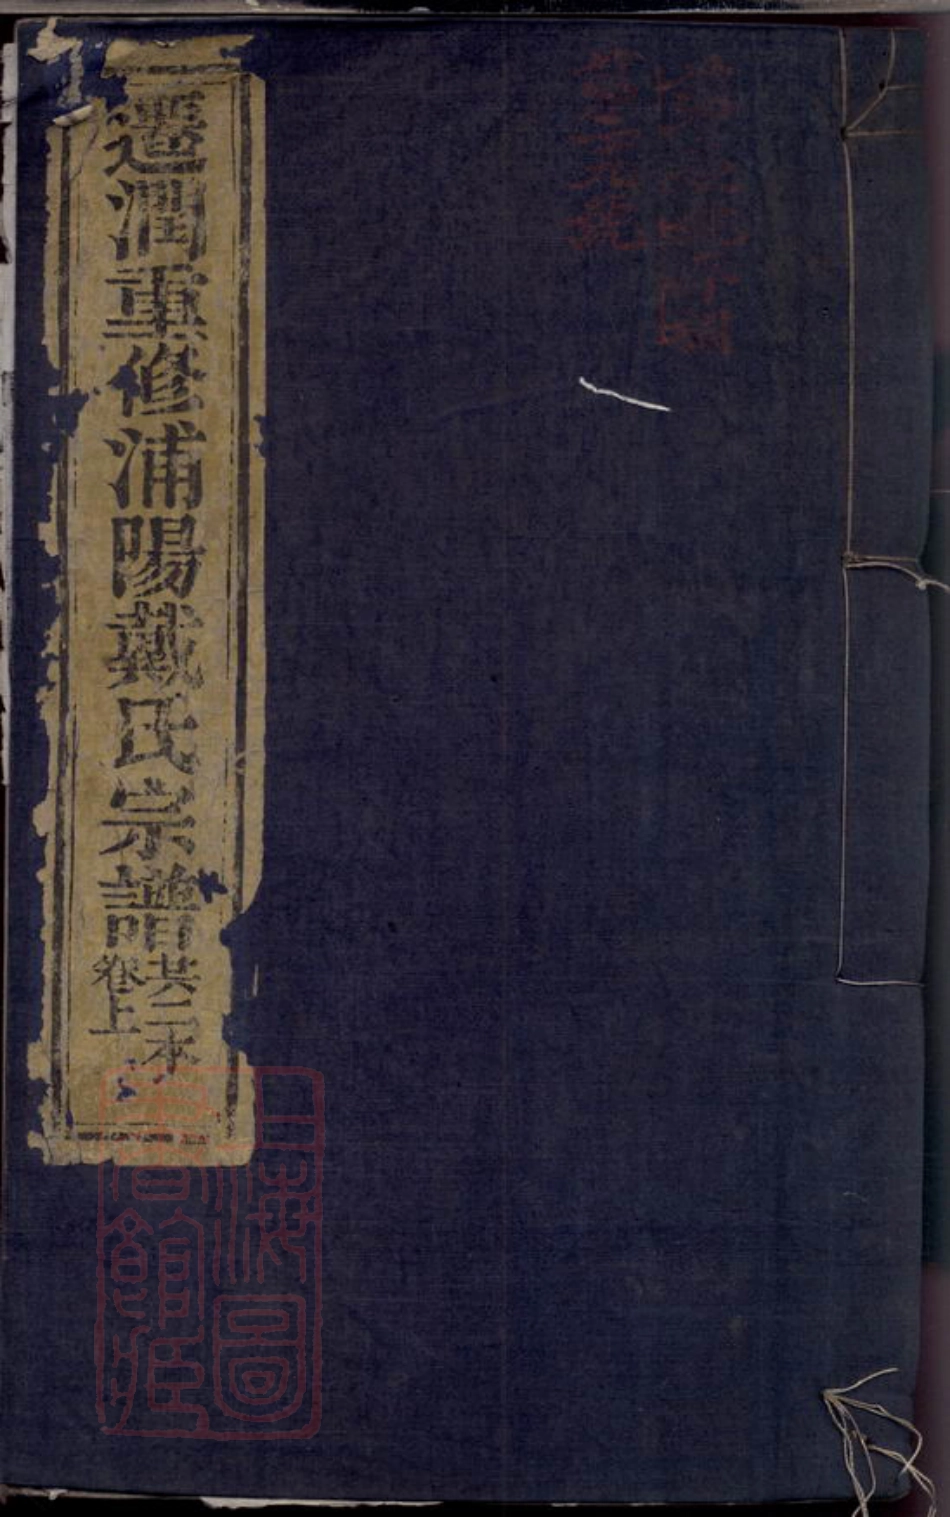 遷潤重修浦陽戴氏宗譜
共二本
卷上
上海圖書館藏